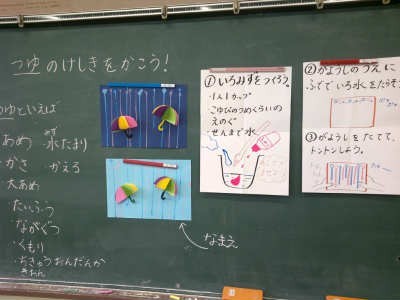 つゆのけしきをかこう!
つゆといえば
あめ
みず
水たまり
かさ
かえる
大あめ
たいふう
ながぐつ
・くもり
・ちきゅうおんだんか
なまえ
①いろみずをつくろう。
・1人1カップ
・こゆびのつめくらいの
えのぐ
・せんまで水
②がようしのうえに
ふででいろ水をたらそう
③がようしをたてて、
トントンしよう。